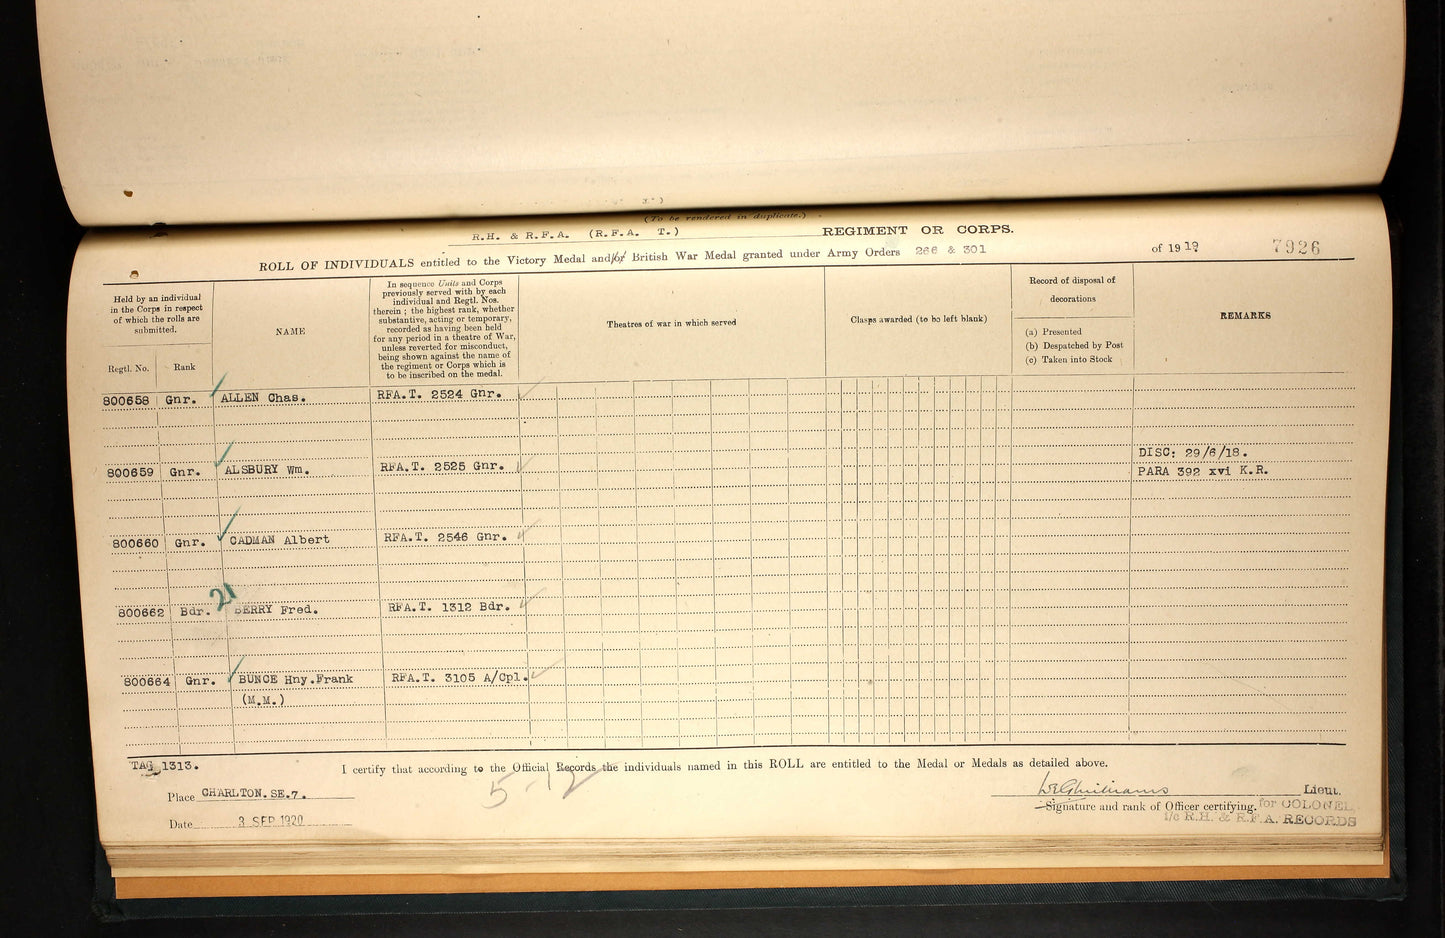 (To be rendered in duplicate.)
R.H. & R.F.A. (R.F.A. T.) REGIMENT OR CORPS.
ROLL OF INDIVIDUALS entitled to the Victory Medal and/or British War Medal granted under Army Orders 266 & 301 of 1919 7926
Held by an individual
in the Corps in respect
of which the rolls are
submitted.
Regtl. No.
Rank
NAME
In sequence Units and Corps
previously served with by each
individual and Regtl. Nos.
therein; the highest rank, whether
substantive, acting or temporary,
recorded as having been held
for any period in a theatre of War,
unless reverted for misconduct,
being shown against the name of
the regiment or Corps which is
to be inscribed on the medal.
Theatres of war in which served
Clasps awarded (to be left blank)
Record of disposal of
decorations
(a) Presented
(b) Despatched by Post
(c) Taken into Stock
REMARKS
800658 Gnr. ALLEN Chas. RFA.T. 2524 Gnr.
DISC: 29/6/18.
800659 Gnr. ALSBURY Wm. RFA.T. 2525 Gnr. PARA 392 xvi K.R.
800660 Gnr. CADMAN Albert RFA.T. 2546 Gnr.
21
800662 Bdr. BERRY Fred. RFA.T. 1312 Bdr.
800664 Gnr. BUNCE Hny.Frank RFA.T. 3105 A/Cpl.
(M.M.)
TAG 1313.
I certify that according to the Official Records the individuals named in this ROLL are entitled to the Medal or Medals as detailed above.
5-12
Place CHARLTON. SE.7.
Lieut.
Signature and rank of Officer certifying. for COLONEL
Date 3 SEP 1920
i/c R.H. & R.F.A. RECORDS